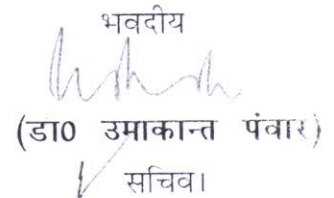 भवदीय
(डा0 उमाकान्त पंवार)
सचिव।